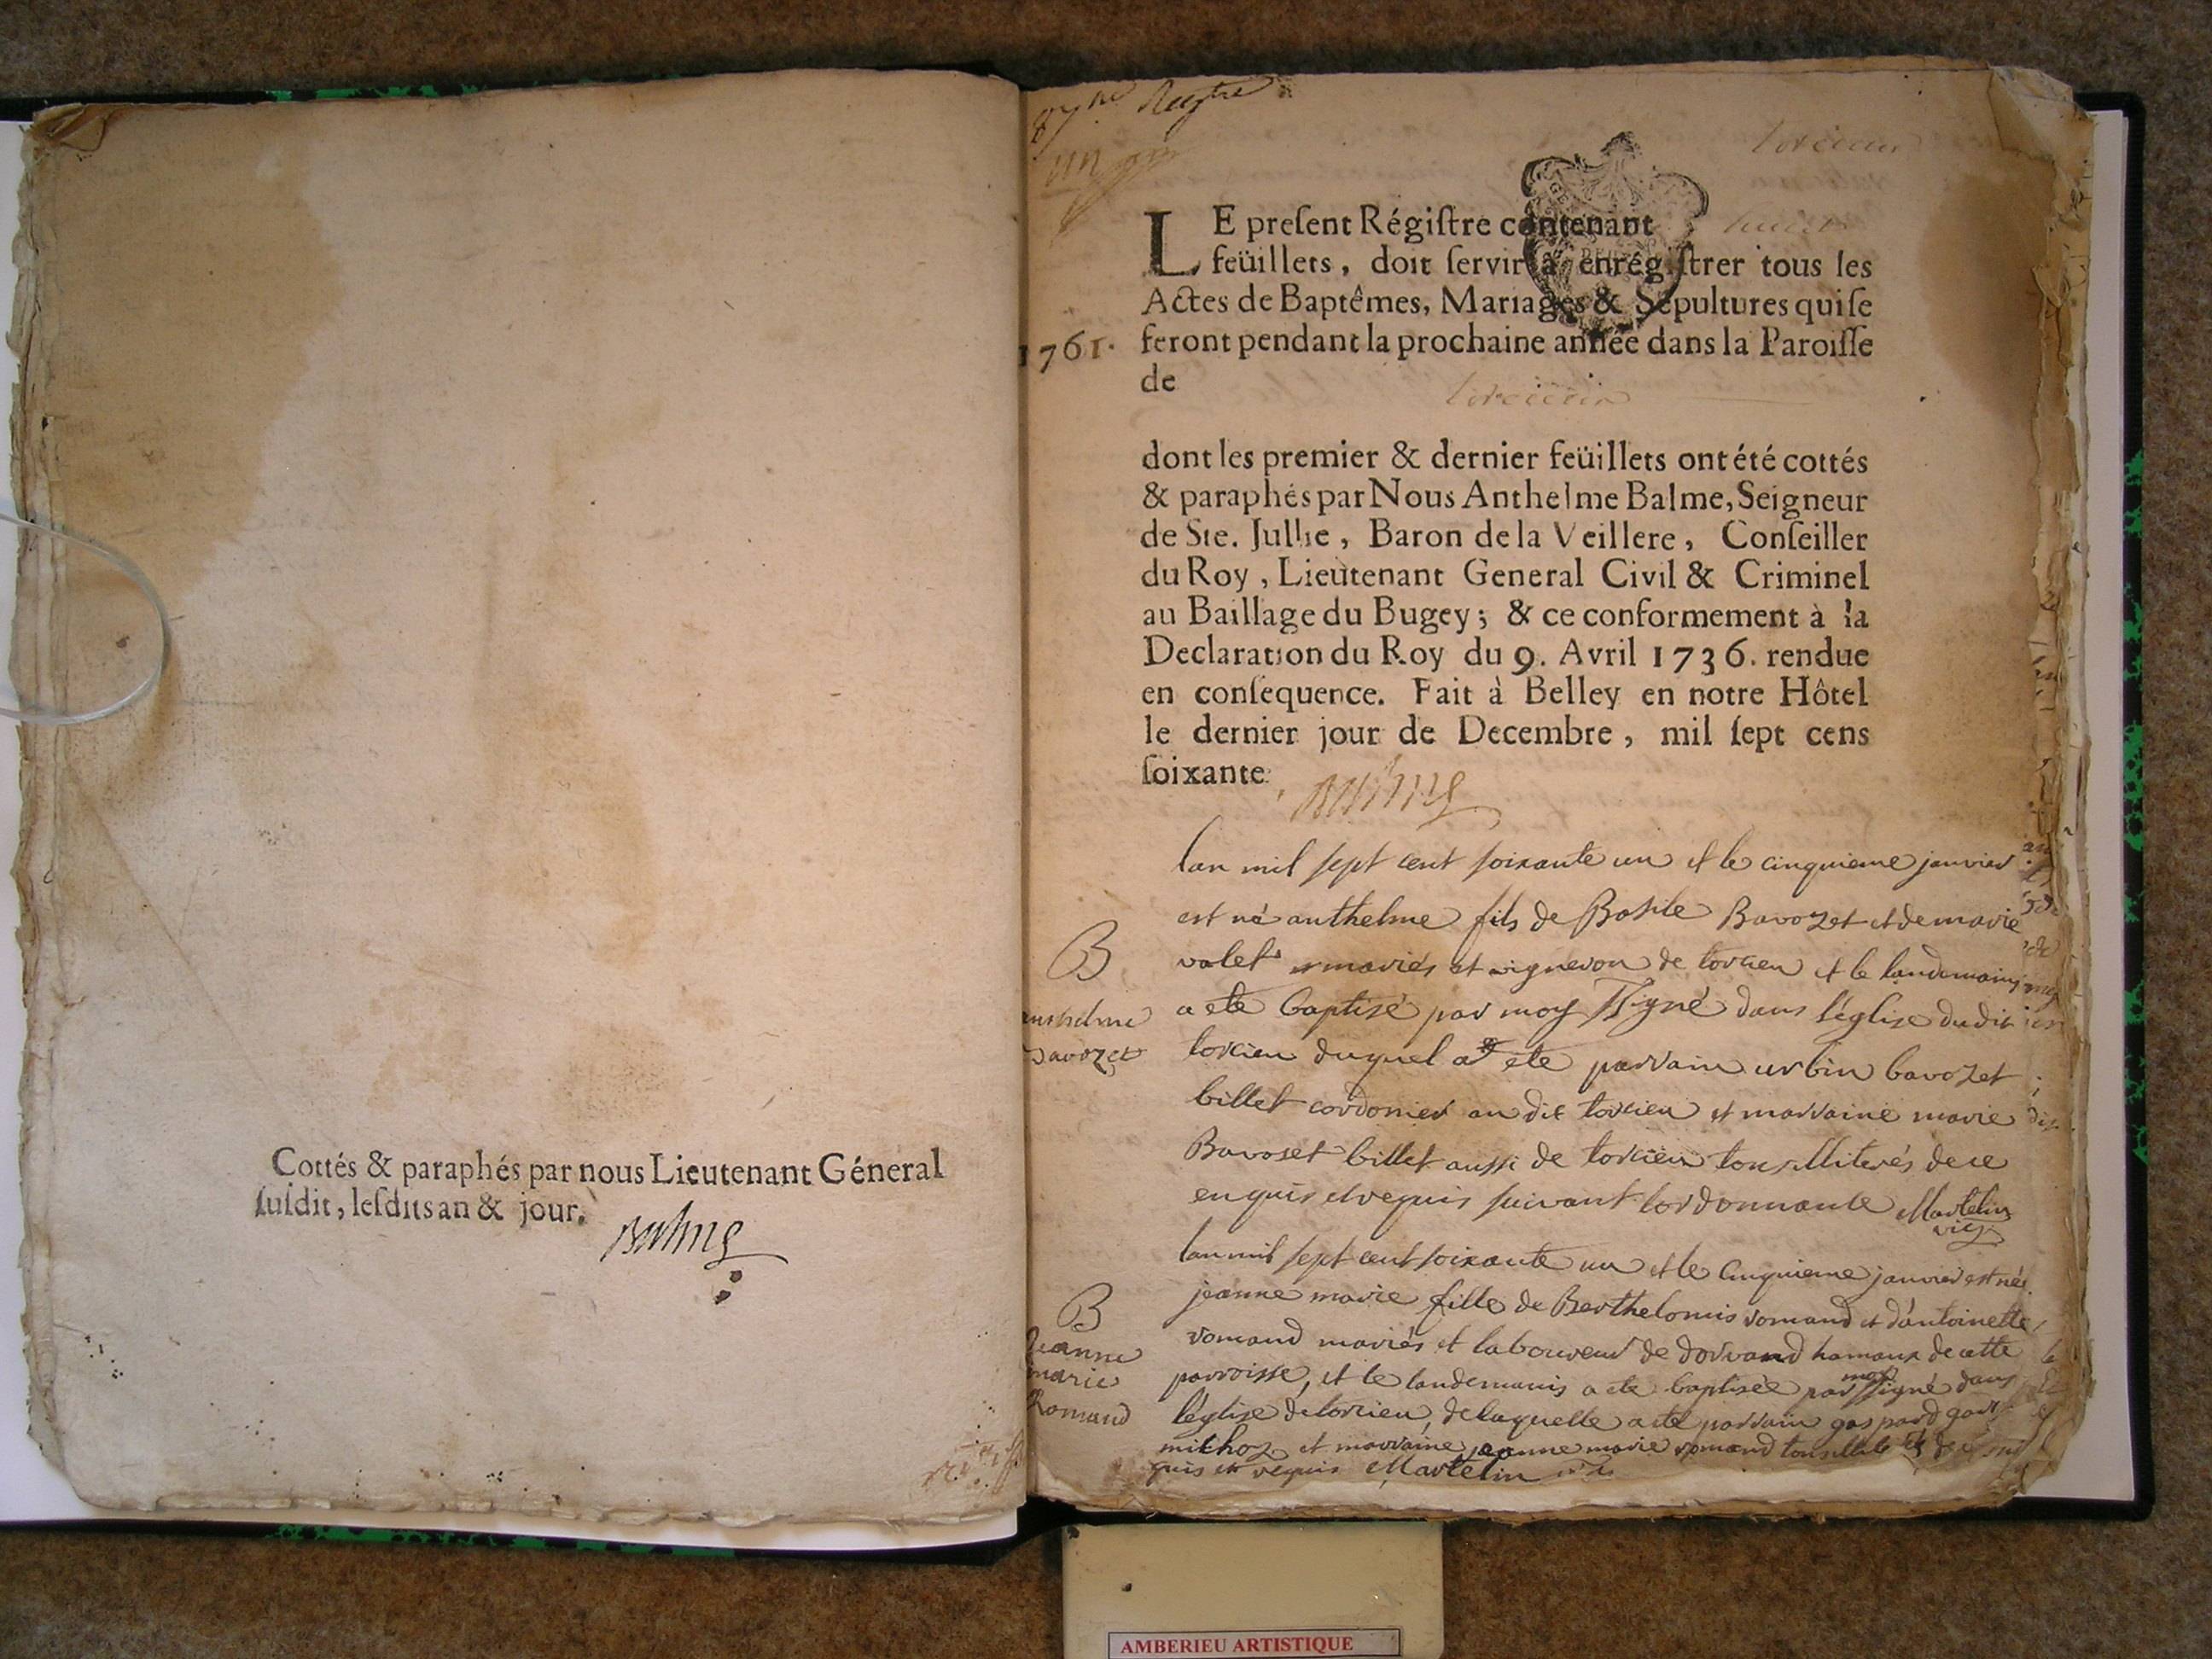 Cottés & paraphés par nous Lieutenant Géneral
ſuſdit, leſdits an & jour.
Balme
Regtre
torcieu
LE preſent Régiſtre contenant huict
feüillets, doit ſervir à enrégiſtrer tous les
Actes de Baptêmes, Mariages & Sépultures qui ſe
1761. feront pendant la prochaine année dans la Paroiſſe
de torcieu
dont les premier & dernier feüillets ont été cottés
& paraphés par Nous Anthelme Balme, Seigneur
de Ste. Jullie, Baron de la Veillere, Conſeiller
du Roy, Lieutenant General Civil & Criminel
au Baillage du Bugey; & ce conformement à la
Declaration du Roy du 9. Avril 1736. rendue
en conſequence. Fait à Belley en notre Hôtel
le dernier jour de Decembre, mil ſept cens
ſoixante.
Balme
lan mil sept cent soixante un et le cinquieme janvier
est né anthelme fils de Basile Bavozet et de marie
B
valet mariés et vigneron de torcieu et le landemain
anthelme
Bavozet
a ete baptisé par moy signé dans l'église dudit
torcieu duquel a ete parrain urbin bavozet
billet cordonier au dit torcieu et marraine marie
Bavoset billet aussi de torcieu tous illiterés de ce
enquis et requis suivant lordonnance Martelin
vic
lan mil sept cent soixante un et le cinquieme janvier est née
B
Jeanne
marie
Romand
jeanne marie fille de Berthelomis romand et d'antoinette
romand mariés et laboureur de dorvand hamaux de cette
parroisse, et le landemain a ete baptisée par moy signé dans
l'église de torcieu, de laquelle a ete parrain gaspard
michoz et marraine jeanne marie romand tous illiterés de ce
quis et requis Martelin vic
AMBERIEU ARTISTIQUE